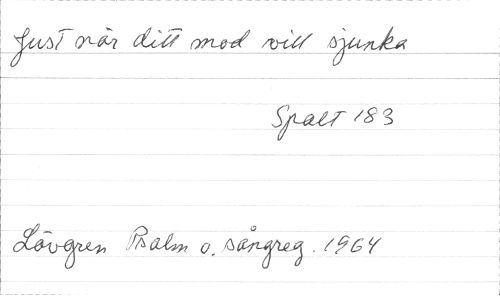 Just när ditt mod vill sjunka
Spalt 183
Lövgren Psalm o. sångreg. 1964